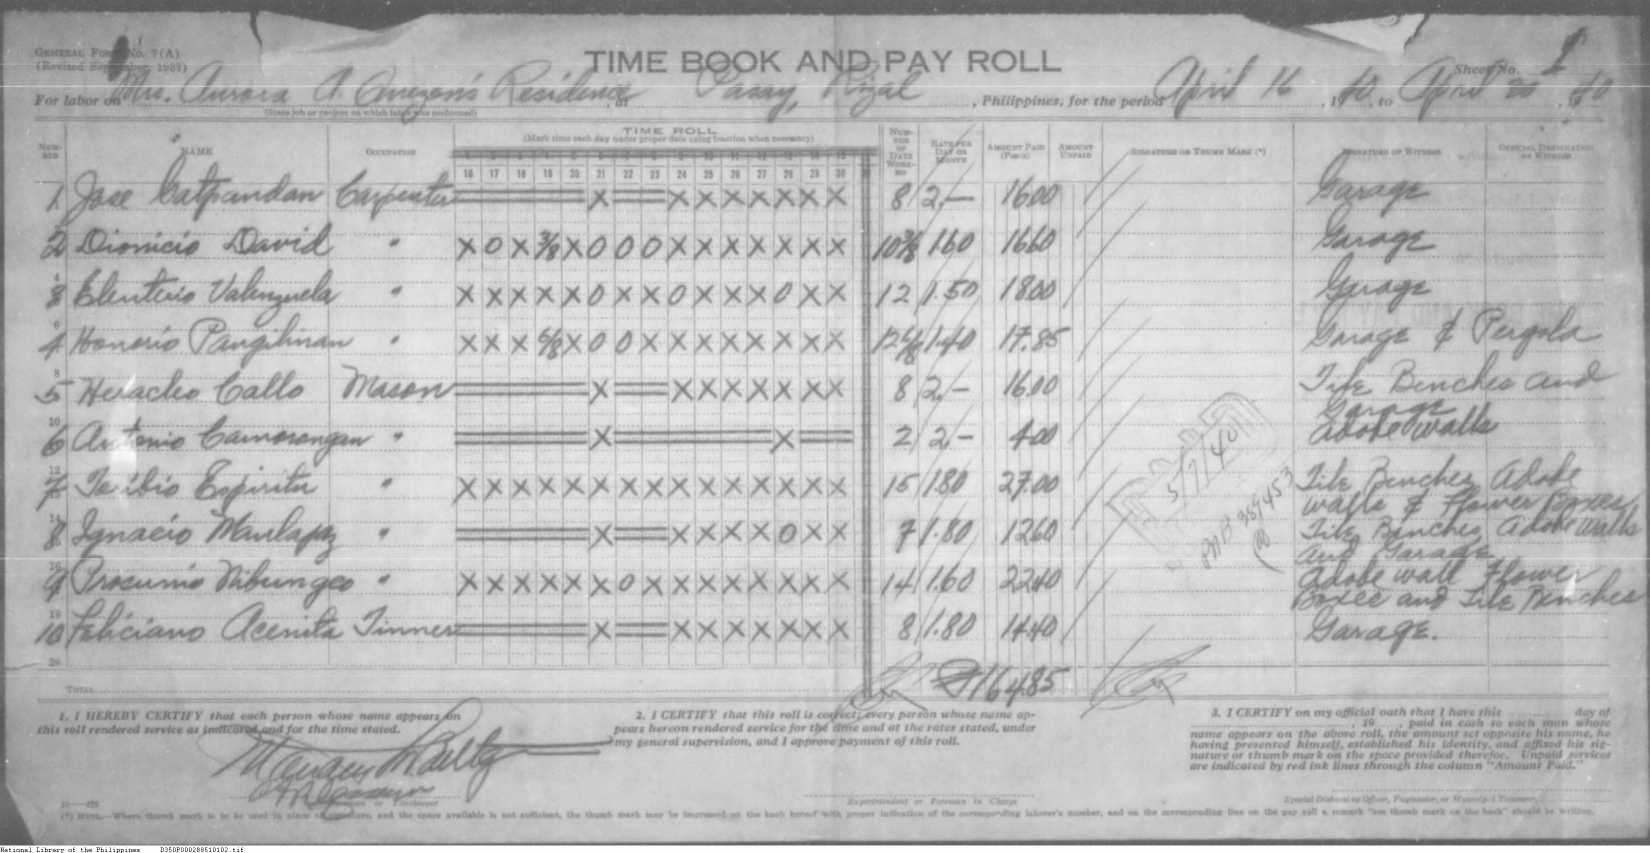 GENERAL FORM No. 7(A)
(Revised September, 1939)
TIME BOOK AND PAY ROLL
Sheet No. 1
For labor on Mrs. Aurora A. Quezon's Residence, at Pasay, Rizal, Philippines, for the period April 16, 1940, to April 30, 1940
(State job or project on which labor was performed)
NUMBER NAME OCCUPATION TIME ROLL NUMBER OF DAYS WORKED RATE PER DAY OR MONTH AMOUNT PAID (Pesos) AMOUNT UNPAID SIGNATURE OR THUMB MARK (*) SIGNATURE OF WITNESS OFFICIAL DESIGNATION OF WITNESS
(Mark time each day under proper date using fraction when necessary)
16 17 18 19 20 21 22 23 24 25 26 27 28 29 30
1 Jose Gatpandan Carpenter X X X X X X X X 8 2.— 16.00 Garage
2 Dionicio David " X O X 3/8 X O O O X X X X X X X 10 3/8 1.60 16.60 Garage
3 Elenterio Valenzuela " X X X X X O X X O X X X O X X 12 1.50 18.00 Garage
4 Honorio Pangilinan " X X X 6/8 X O O X X X X X X X X 12 6/8 1.40 17.85 Garage & Pergola
5 Heracleo Callo Mason X X X X X X X X 8 2.— 16.00 Tile Benches and
Garage
6 Antonio Camorongan " X X 2 2.— 4.00 Adobe walls
7 Toribio Espiritu " X X X X X X X X X X X X X X X 15 1.80 27.00 Tile Benches, Adobe
walls & Flower Boxes
8 Ignacio Manlapaz " X X X X X O X X 7 1.80 12.60 Tile Benches, Adobe Walls
and Garage
9 Nibungco " X X X X X X O X X X X X X X X 14 1.60 22.40 Adobe wall Flower
Boxes and Tile Benches
10 Feliciano Acenita Tinner X X X X X X X X 8 1.80 14.40 Garage.
20
TOTAL 164.85
5/7/40
PNB 389453
1. I HEREBY CERTIFY that each person whose name appears on
this roll rendered service as indicated and for the time stated.
2. I CERTIFY that this roll is correct; every person whose name ap-
pears hereon rendered service for the time and at the rates stated, under
my general supervision, and I approve payment of this roll.
3. I CERTIFY on my official oath that I have this day of
, 19 , paid in cash to each man whose
name appears on the above roll, the amount set opposite his name, he
having presented himself, established his identity, and affixed his sig-
nature or thumb mark on the space provided therefor. Unpaid services
are indicated by red ink lines through the column "Amount Paid."
Foreman or Timekeeper
Superintendent or Foreman in Charge
Special Disbursing Officer, Paymaster, or Municipal Treasurer
(*) NOTE.—Where thumb mark is to be used in place of signature, and the space available is not sufficient, the thumb mark may be impressed on the back hereof with proper indication of the corresponding laborer's number, and on the corresponding line on the pay roll a remark "see thumb mark on the back" should be written.
National Library of the Philippines D350P000288510102.tif